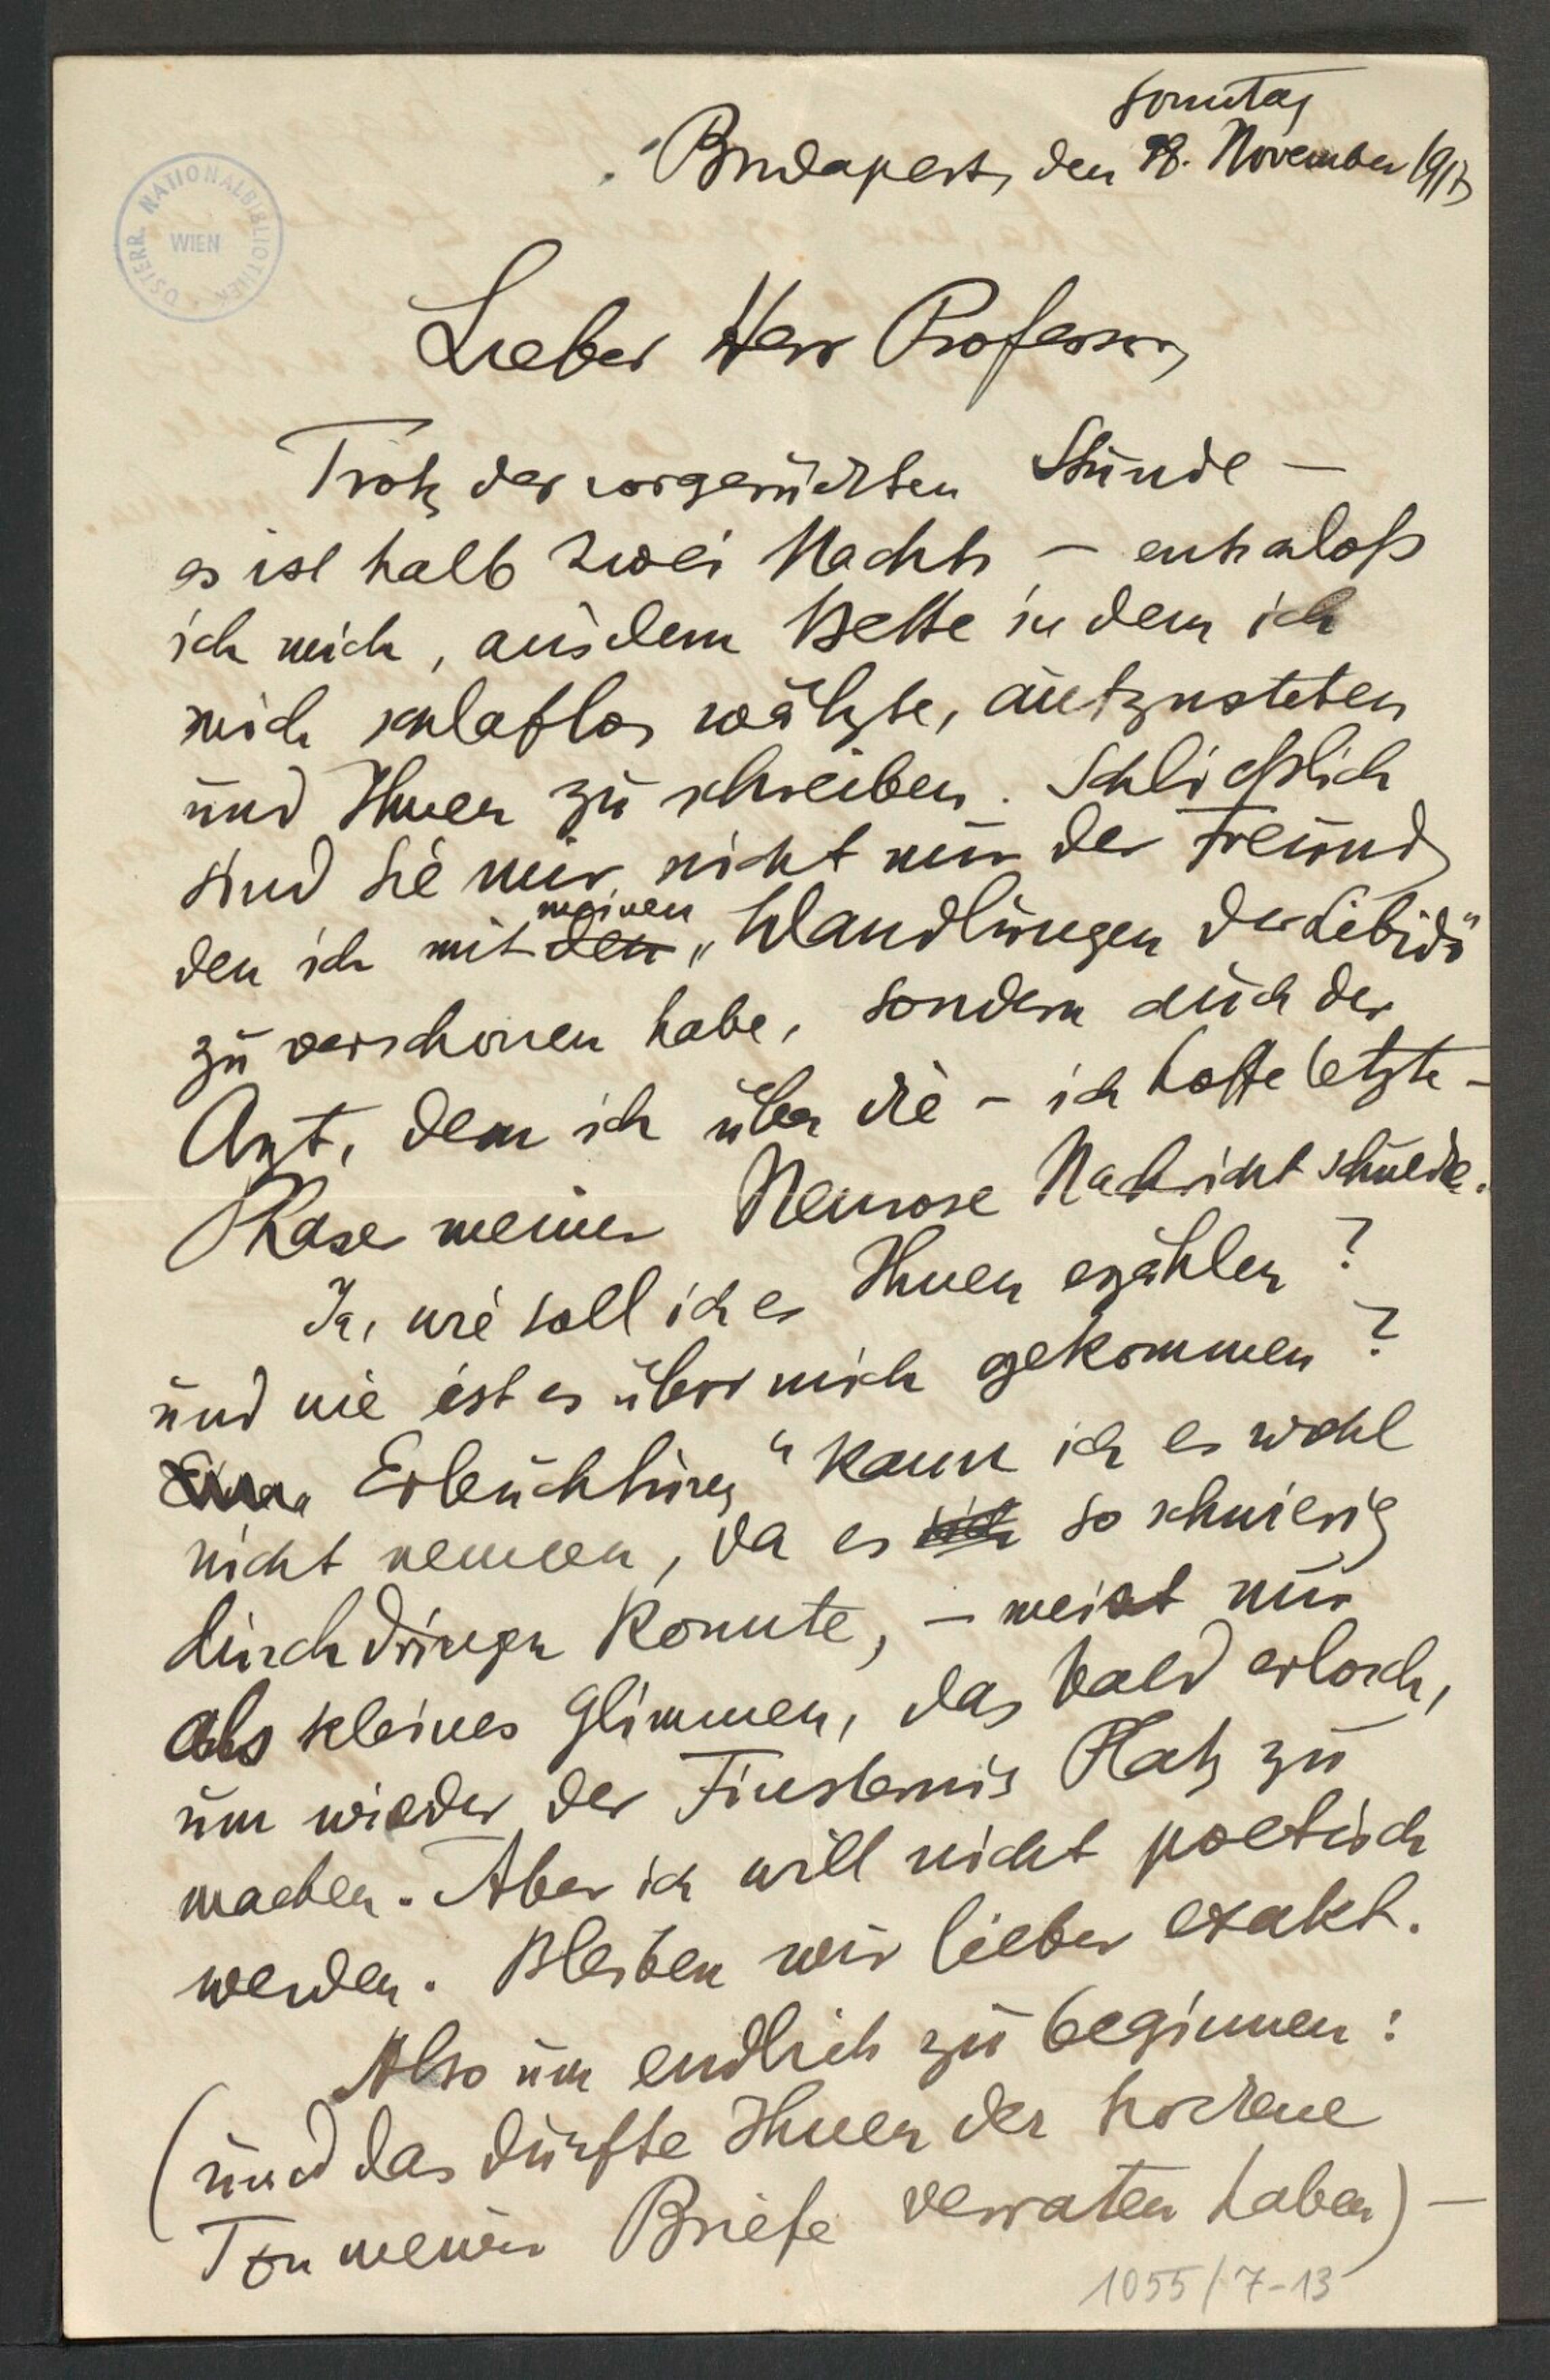 Sonntag
Budapest, den 18. November 1917
ÖSTERR. NATIONALBIBLIOTHEK
WIEN
Lieber Herr Professor,
Trotz der vorgerückten Stunde –
es ist halb zwei Nachts – entschloß
ich mich, aus dem Bette in dem ich
mich schlaflos wälzte, aufzustehen
und Ihnen zu schreiben. Schließlich
sind Sie mir nicht nur der Freund,
meinen
den ich mit den „Wandlungen der Libido“
zu verschonen habe, sondern auch der
Arzt, dem ich über die – ich hoffe letzte –
Phase meiner Neurose Nachricht schulde.
Ja, wie soll ich es Ihnen erzählen?
und wie ist es über mich gekommen?
„Erleuchtung“ kann ich es wohl
nicht nennen, da es sich so schwierig
durchdringen konnte, – meist nur
als kleines Glimmen, das bald erlosch,
um wieder der Finsternis Platz zu
machen. Aber ich will nicht poetisch
werden. Bleiben wir lieber exakt.
Also um endlich zu beginnen:
(und das dürfte Ihnen der trockene
Ton meiner Briefe verraten haben) –
1055/7-13